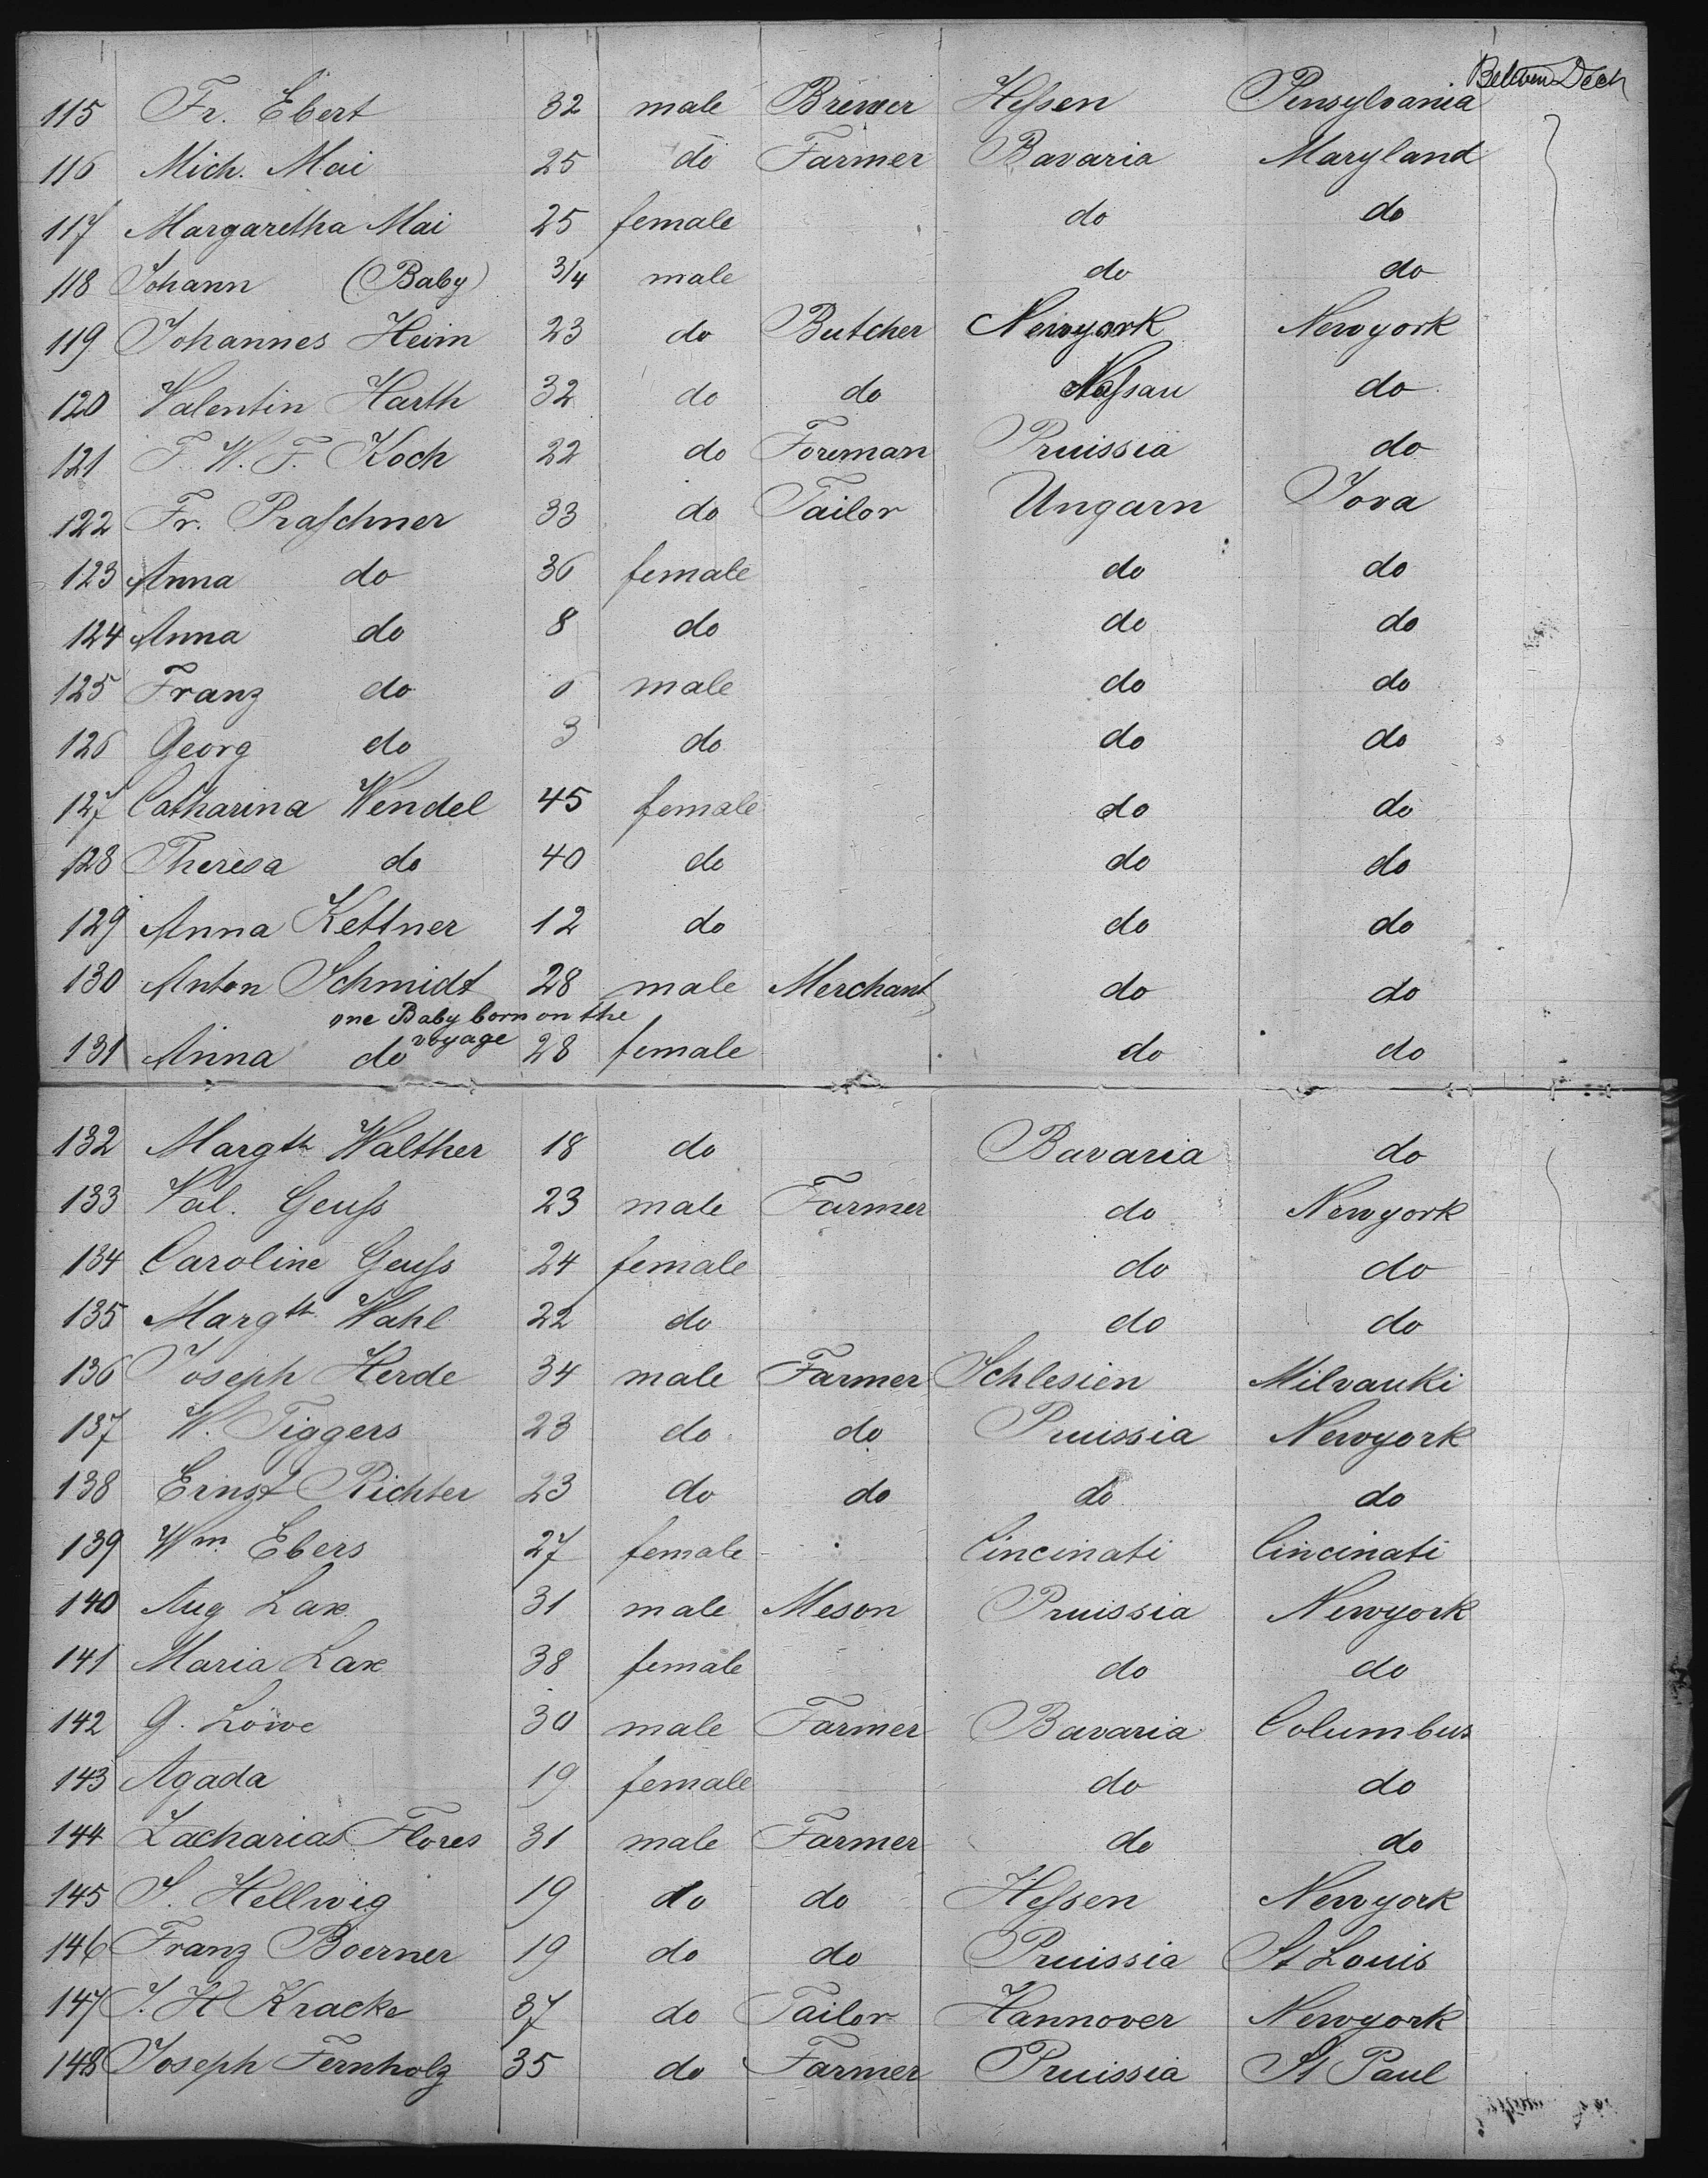 Between Deck
115 Fr. Ebert 32 male Brewer Heſsen Pensylvania
116 Mich. Mai 25 do Farmer Bavaria Maryland
117 Margaretha Mai 25 female do do
118 Johann (Baby) 3/4 male do do
119 Johannes Heim 23 do Butcher Newyork Newyork
120 Valentin Harth 32 do do Naſsau do
121 F. W. F. Koch 22 do Foreman Pruissia do
122 Fr. Praſchner 33 do Tailor Ungarn Jova
123 Anna do 36 female do do
124 Anna do 8 do do do
125 Franz do male do do
126 Georg do 3 do do do
127 Catharina Wendel 45 female do do
128 Theresa do 40 do do do
129 Anna Kettner 12 do do do
130 Anton Schmidt 28 male Merchant do do
one Baby born on the
voyage
131 Anna do 28 female do do
132 Margth Walther 18 do Bavaria do
133 Val. Geuſs 23 male Farmer do Newyork
134 Caroline Geuſs 24 female do do
135 Margth Wahl 22 do do do
136 Joseph Herde 34 male Farmer Schlesien Milvauki
137 W. Tiggers 23 do do Pruissia Newyork
138 Ernst Richter 23 do do do do
139 Wm. Ebers 27 female Cincinati Cincinati
140 Aug Lax 31 male Meson Pruissia Newyork
141 Maria Lax 38 female do do
142 G. Löwe 30 male Farmer Bavaria Columbus
143 Agada 19 female do do
144 Zacharias Flores 31 male Farmer do do
145 S. Hellwig 19 do do Heſsen Newyork
146 Franz Boerner 19 do do Pruissia St Louis
147 J. H Kracke 37 do Tailor Hannover Newyork
148 Joseph Fernholz 35 do Farmer Pruissia St Paul